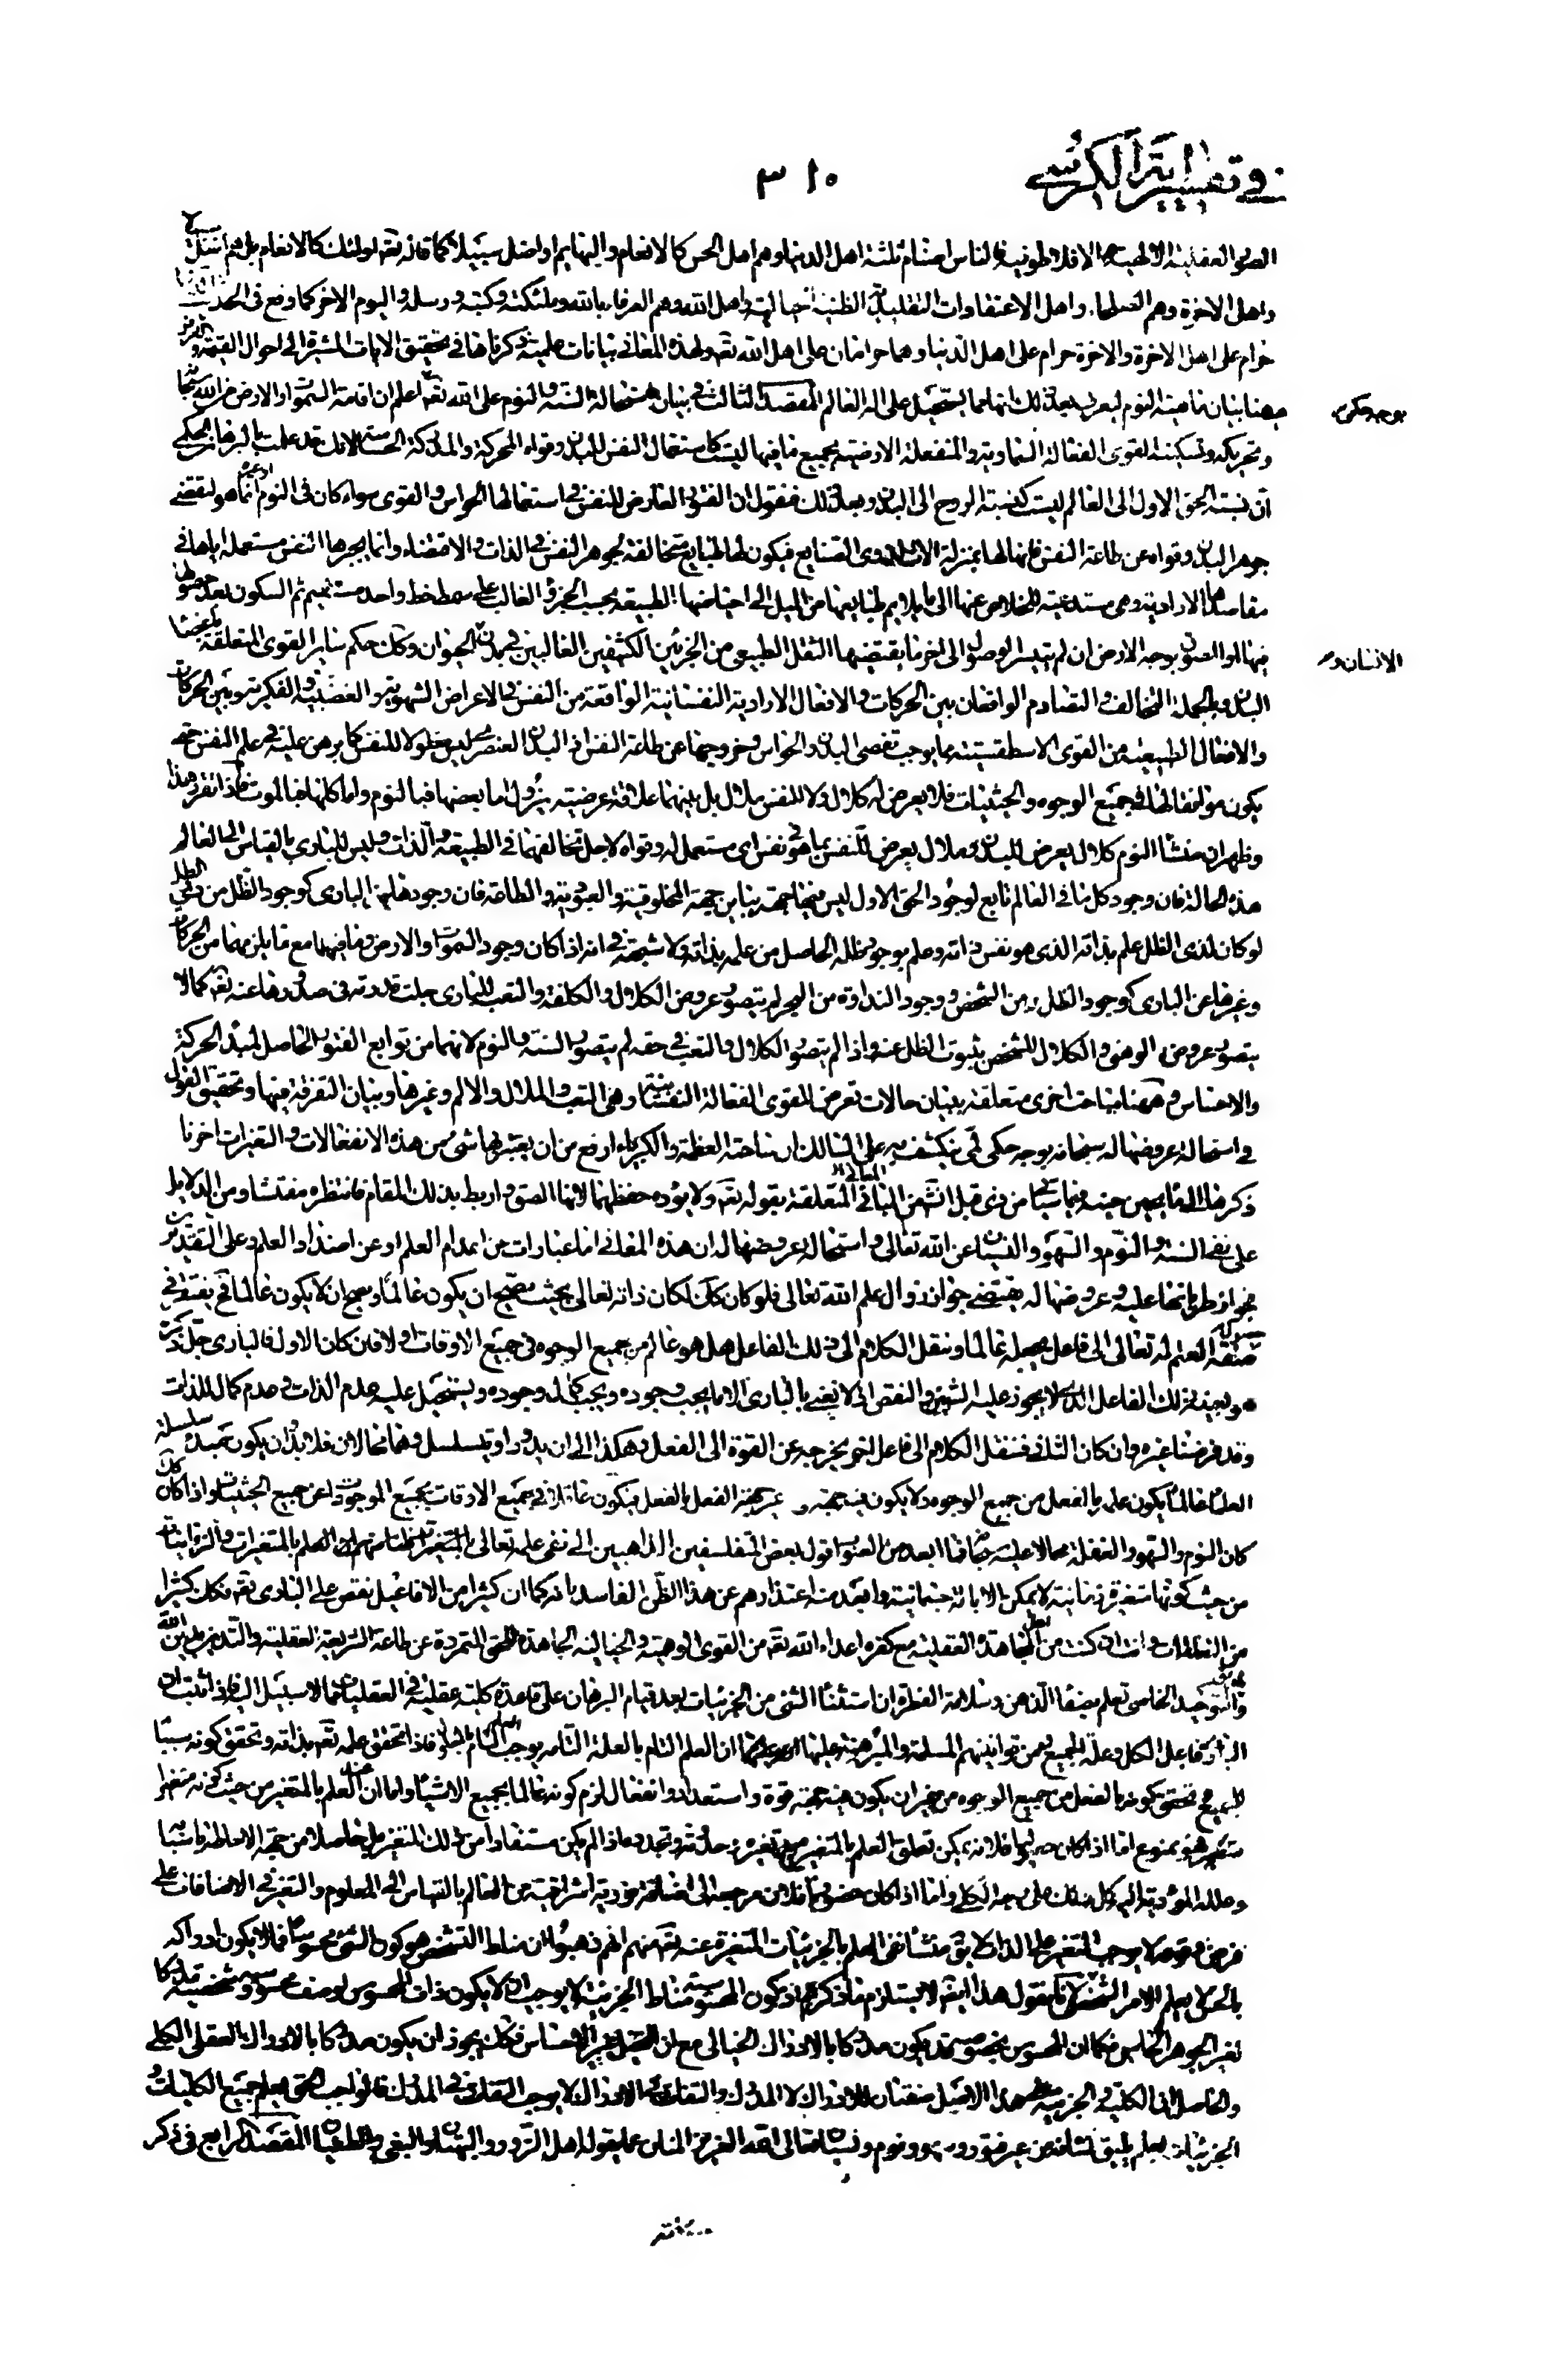 في تفسير آية الكرسي
٣١٠
الصور العقلية الالهية الافلاطونية فالناس اقسام ثلثة اهل الدنيا وهم اهل الحس كالانعام والبهايم او اضل سبيلا كما قال تع اولئك كالانعام بل هم اضل سبيلا
واهل الاخرة وهم الصلحاء واهل الاعتقادات التقليدية الظنية الخيالية واهل الله وهم العرفاء بالله وملئكته وكتبه ورسله واليوم الاخر كما وقع في الحديث الدنيا
حرام على اهل الاخرة والاخرة حرام على اهل الدنيا وهما حرامان على اهل الله تع ولهذه المعاني بيانات علمية ذكرناها في تحقيق الايات المشيرة الى احوال القيمة
ههنا بيان ماهية النوم ليعرف بعد ذلك انهما مما يستحيل على اله العالم المقصد الثالث في بيان استحالة السنة والنوم على الله تع اعلم ان اقامة السموات والارض من الله سبحانه
بوجه حكمي
وتحريكه وتسكينه القوى الفعالة السماوية والمنفعلة الارضية بجميع ما فيها ليست كاستعمال النفس للبدن وقواه المحركة والمدركة الحساسة لانك قد علمت بالبرهان الحكمي
ان نسبة الحق الاول الى العالم ليست كنسبة الروح الى البدن وبعد ذلك فنقول ان الفتور العارض للنفس في استعمالها الحواس والقوى سواء كان في النوم او غيره انما هو لتقضي
جوهر البدن وقواه عن طاعة النفس فانها لها بمنزلة الالات لذوى الصنايع فيكون لها طبايع متخالفة لجوهر النفس في الذات والاقتضاء وانما يجبرها النفس مستعملة اياها في
مقاصدها الارادية وهي مستدعية للخلاص عنها الى ما يلايم طبايعها من الميل الى احيازها الطبيعة بحسب الجزء الغالب على سمط خط واحد مستقيم ثم السكون بعد حصولها
فيها او الصوق بوجه الارض ان لم يتيسر الوصول الى اخر ما يقتضيها الثقل الطبيعي من الجزئين الكثيفين الغالبين في بدن الحيوان وكك حكم ساير القوى المتعلقة باعضاء
الانسان و
البدن وبالجملة التخالف والتصادم الواقعان بين الحركات والافعال الارادية النفسانية الواقعة من النفس في الاعراض الشهوية والغضبية والفكرية وبين الحركات
والافعال الطبيعية من القوى الاسطقسية مما يوجب تعصى البدن والحواس وخروجها عن طاعة النفس فان البدن العنصرى ليس معلولا للنفس كما برهن عليه في علم النفس حتى
يكون موافقا لها في جميع الوجوه والحيثيات فلا يعرض له كلال ولا للنفس ملال بل بينهما علاقة عرضية يزول اما بعضها فبالنوم واما كلها فبالموت فاذا تقرر هذا
وظهر ان منشأ النوم كلال يعرض للبدن وملال يعرض للنفس بما هو نفس اى مستعمل له وقواه لاجل تخالفهما في الطبيعة والذات وليس للبارى بالقياس الى العالم
هذه الحالة فان وجود كل ما في العالم تابع لوجود الحق الاول ليس فيها جهة يباين جهة المخلوقية والعبودية والطاعة فان وجودها من البارى كوجود الظل من ذى الظل
لو كان لذى الظل علم بذاته الذى هو نفس ذاته وعلم بوجود ظله الحاصل من علمه بذاته ولا شبهة في انه اذا كان وجود السموات والارض وما فيهما مع ما يلزمهما من الحركات
وغيرها عن البارى كوجود الظل من الشخص ووجود النداوة من البحر لم يتصور عروض الكلال والكلفة والتعب للبارى جلت قدرته في صدورها عنه تع كما لا
يتصور عروض الوهن والكلال للشخص بثبوت الظل عنه واذا لم يتصور الكلال والتعب في حقه لم يتصور السنة والنوم لانهما من توابع الفتور الحاصل لمبدء الحركة
والاحساس وههنا مباحث اخرى متعلقة ببيان حالات تعرض للقوى الفعالة النفسانية وهي التعب والملال والالم وغيرها وبيان التفرقة بينها وتحقيق القول
في استحالة عروضها له سبحانه بوجه حكمى لمى ينكشف به على السالك ان ساحة العظمة والكبرياء ارفع من ان يعتريها شئ من هذه الانفعالات والتغيرات اخرنا
ذكرها الى ما يجئ حينه فيما سيأتى من ذى قبل انش من المعانى المتعلقة بقوله تع ولا يؤده حفظهما لانها الصق واربط بذلك المقام فانتظره مفتشا ومن الدلايل
على نفى السنة والنوم والسهو والنسيان عن الله تعالى واستحالة عروضها له ان هذه المعانى اما عبارات عن اعدام العلم او عن اضداد العلم وعلى التقديرين
فجواز طريانها عليه وعروضها له يقتضى جواز زوال علم الله تعالى فلو كان كك لكان ذاته تعالى بحيث يصح ان يكون عالما ويصح ان لا يكون عالما فح يفتقر في
حصول صفة العلم له تعالى الى فاعل يجعله عالما وننقل الكلام الى ذلك الفاعل هل هو عالم من جميع الوجوه في جميع الاوقات او لا فان كان الاول فالبارى جل ذكره
هو بعينه ذلك الفاعل الذى لا يجوز عليه الشين والنقص اذ لا نعنى بالبارى الا ما يجب وجوده ويجب كمال وجوده ويستحيل عليه عدم الذات وعدم كمال للذات
وقد فرضنا غيره وان كان الثانى فننقل الكلام الى فاعل اخر يخرجه عن القوة الى الفعل وهكذا الى ان يدور او يتسلسل وهما محالان فلا بد ان يكون مبدء سلسلة
العلماء عالما يكون علمه بالفعل من جميع الوجوه ولا يكون فيه جهة غير جهة الفعل بالفعل فيكون عاقلا في جميع الاوقات بجميع الموجودات عن جميع الحيثيات واذا كان كك
كان النوم والسهو والغفلة محالا عليه تعالى فما ابعد من الصواب قول بعض المتفلسفين الذاهبين الى نفى علمه تعالى بالمتغيرات ظنا منهم ان العلم بالمتغيرات والزمانيات
من حيث كونها متغيرة زمانية لا يمكن الا بالة جسمانية وابعد منه اعتذارهم عن هذا الظن الفاسد بانه كما ان كثيرا من الافاعيل نقص على البارى تع فكك كثيرا
من التعقلات وانت ان كنت من اهل المجاهدة العقلية مع كفرة اعداء الله تع من القوى الوهمية والخيالية الجاحدة للحق المتمردة عن طاعة الشريعة العقلية والتدين بدين الله
والتوحيد الخاصى تعلم بصفاء الذهن وسلامة الفطرة ان استثناء الشئ من الجزئيات بعد قيام البرهان على قاعدة كلية عقلية في العقليات مما لا سبيل اليه فاذا ثبت ان
البارى فاعل الكل وعلة الجميع ومن قوانينهم المسلمة والمبرهنة عليها ان العلم التام بالعلة التامة يوجب العلم التام بالمعلول فاذا تحقق علمه تع بذاته وتحقق كونه سببا
للجميع وتحقق كونه بالفعل من جميع الوجوه من غير ان يكون فيه جهة قوة واستعداد وانفعال لزم كونه عالما بجميع الاشياء واما ان العلم بالمتغير من حيث كونه متغيرا
متغير فهو ممنوع اما اذا كان حصوليا فلانه يمكن تعلق العلم بالمتغير مع تغيره وحدوثه وتجدده اذا لم يكن مستفادا من ذلك المتغير بل حاصلا من جهة الاحاطة باسبابه
وعلله المؤدية اليه كل ذلك على وجه الكلى واما اذا كان حضوريا فلان مرجعه الى اضافة نورية اشراقية من العالم بالقياس الى المعلوم والتغير في الاضافات على
فرض وقوعه لا يوجب التغير في الذات بقى منشأ نفى العلم بالجزئيات المتغيرة عنه تع منهم انهم ذهبوا ان مناط التشخص هو كون الشئ محسوسا فما لا يكون ادراكه
بالحس لا يعلم الامر الشخصى فنقول هذا ايضا لا يستلزم ما ذكرتم اذ كون المحسوسية مناط الجزئية لا يوجب ان لا يكون ذات المحسوس لوصف محسوسيته وشخصيته مدركا
لغير الجوهر الحاس فكما ان المحسوس بخصوصيته يكون مدركا بالادراك الخيالى مع ان التخيل غير الاحساس فكك يجوز ان يكون مدركا بالادراك العقلى الكلى
والحاصل ان الكلية والجزئية على هذا الاصل صفتان للادراك لا المدرك والتفاوت في الادراك لا يوجب التفاوت في المدرك فالواجب الحق يعلم جميع الكليات و
الجزئيات بعلم يليق بشانه من غير فتور وسهو ونوم ونسيان تعالى الله العزيز المنان عما يقول اهل الزور والبهتان والبغى والطغيان المقصد الرابع في ذكر